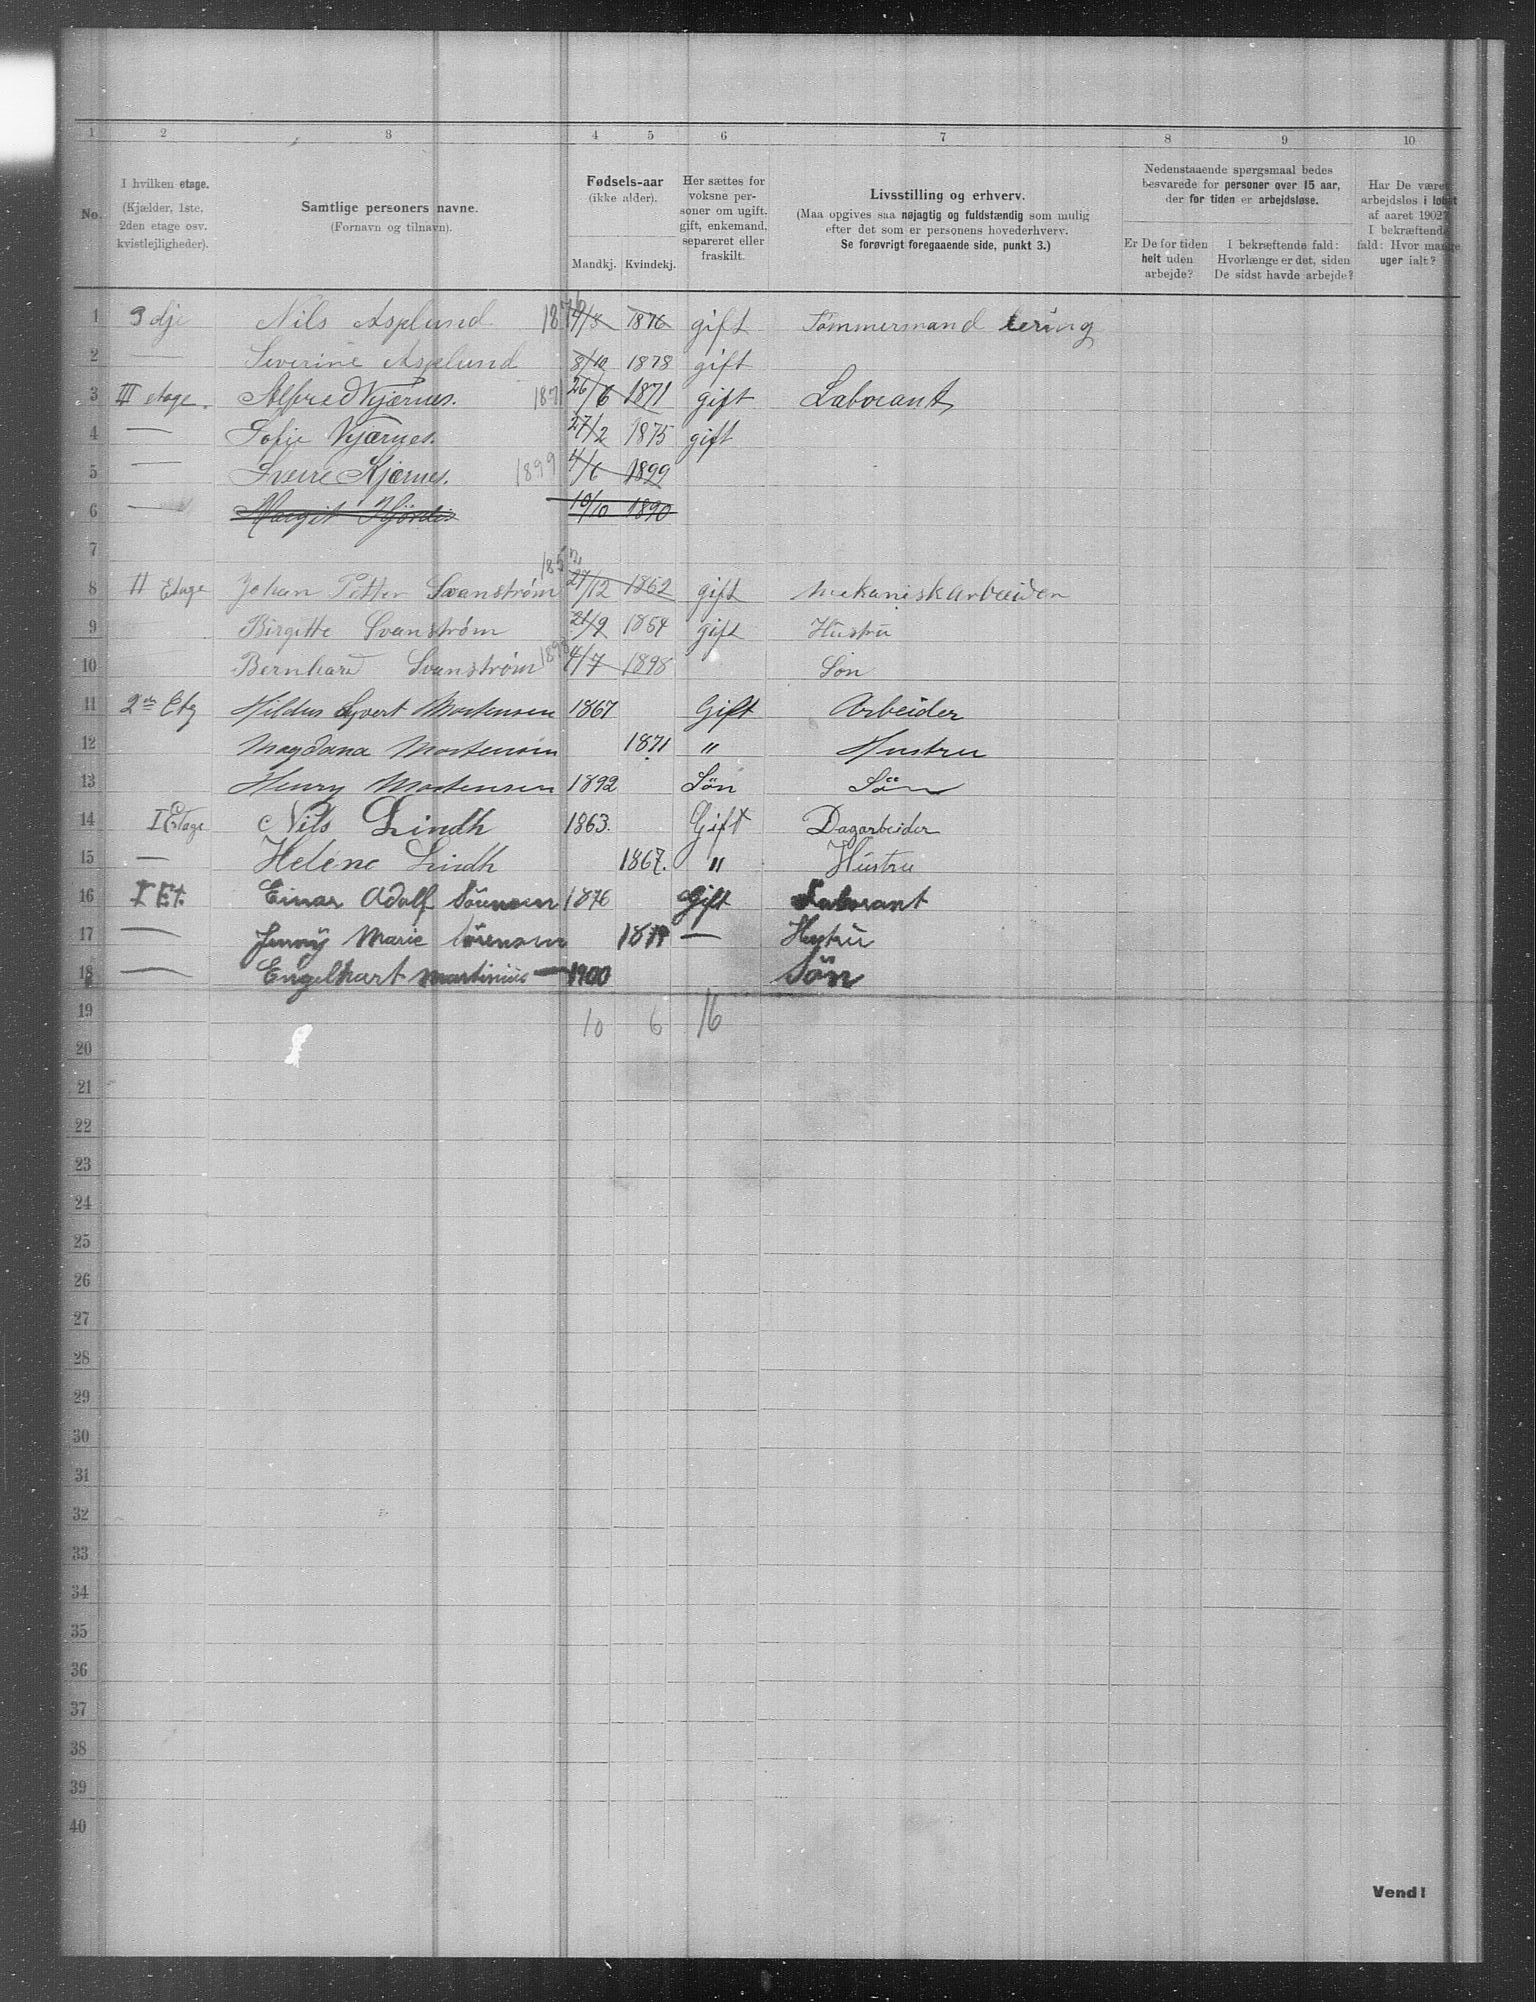 1 2 3 4 5 6 7 8 9 10
No.
I hvilken etage.
(Kjælder, 1ste,
2den etage osv.
kvistlejligheder).
Samtlige personers navne.
(Fornavn og tilnavn).
Fødsels-aar
(ikke alder).
Mandkj. Kvindekj.
Her sættes for
voksne per-
soner om ugift,
gift, enkemand,
separeret eller
fraskilt.
Livsstilling og erhverv.
(Maa opgives saa nøjagtig og fuldstændig som mulig
efter det som er personens hovederhverv.
Se forøvrigt foregaaende side, punkt 3.)
Nedenstaaende spørgsmaal bedes
besvarede for personer over 15 aar,
der for tiden er arbejdsløse.
Er De for tiden
helt uden
arbejde?
I bekræftende fald:
Hvorlænge er det, siden
De sidst havde arbejde?
Har De været
arbejdsløs i løbet
af aaret 1902?
I bekræftende
fald: Hvor mange
uger ialt?
1 3 dje Nils Asplund 1876 4/8 1876 gift Tømmermand lering
2 — Severine Asplund 8/10 1878 gift
3 III etage. Alfred Kjærnes. 1871 26/6 1871 gift Laborant
4 — Sofie Kjærnes. 27/2 1875 gift
5 — Sverre Kjærnes. 1899 4/6 1899
6 — Margit Hjördis 10/10 1890
7
8 II Etage Johan Petter Svanstrøm 1852 27/12 1862 gift Mekaniskarbeider
9 Birgitte Svanstrøm 21/9 1854 gift Hustru
10 Bernhard Svanstrøm 1898 4/7 1898 Søn
11 2den Etg Hildus Syvert Mortensen 1867 Gift Arbeider
12 Magdana Mortensen 1871 " Hustru
13 Henry Mortensen 1892 Sön Sön
14 I Etage Nils Lindh 1863. Gift Dagarbeider
15 — Helene Lindh 1867. " Hustru
16 I Et. Einar Adolf Sörensen 1876 Gift Laborant
17 — Jenny Marie Sörensen 1879 — Hustru
18 — Engelhart Martinius — 1900 Sön
19 10 6 16
20
21
22
23
24
25
26
27
28
29
30
31
32
33
34
35
36
37
38
39
40
Vend!